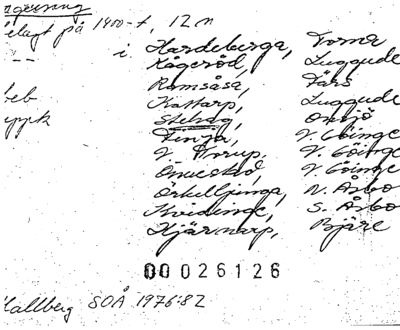 belagt på 1400-t, 12 n
i Hardeberga, Torna
-- Kågeröd, Luggude
Ramsåsa, Färs
beb Kattarp, Luggude
Stehag, Onsjö
Finja, V. Göinge
V. Torup, V. Göinge
Önnestad, V. Göinge
Örkelljunga, N. Åsbo
Kvidinge, S. Åsbo
Hjärnarp, Bjäre
00026126
Hallberg SOÅ 1976:82